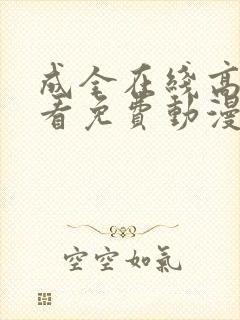 成全在綫高
看免費動漫
空空如氣